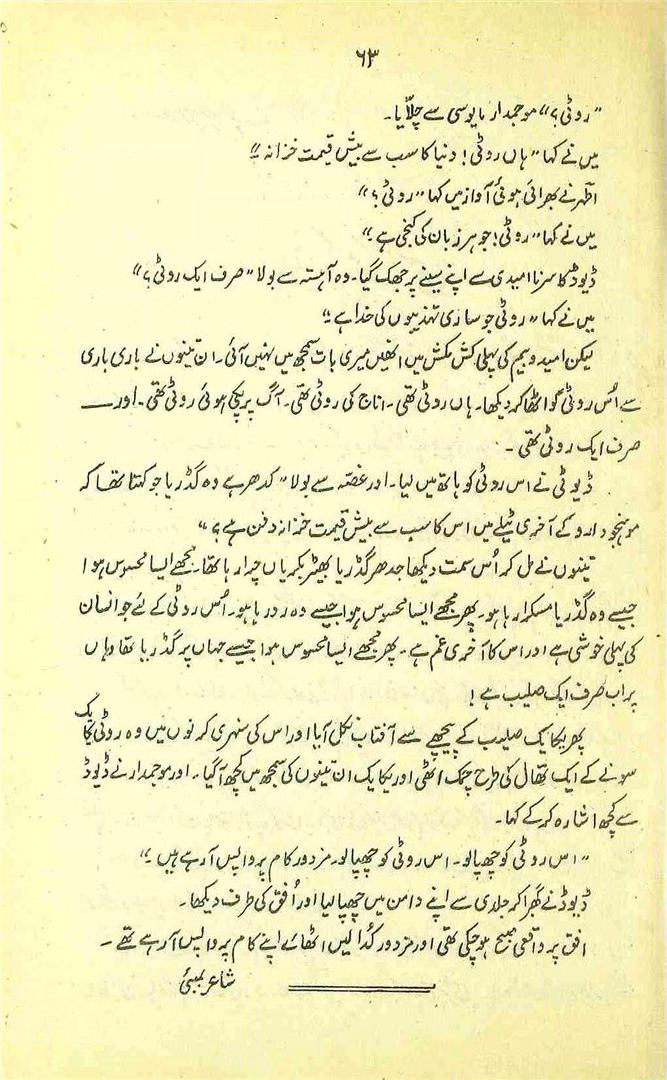 ۶۳
”روٹی؟“ موجمدار مایوسی سے چلّایا۔
میں نے کہا ”ہاں روٹی! دنیا کا سب سے بیش قیمت خزانہ!“
اظہر نے بھرائی ہوئی آواز میں کہا ”روٹی؟“
میں نے کہا ”روٹی! جو ہر زبان کی کنجی ہے۔“
ڈیوڈ کا سر نا امیدی سے اپنے سینے پر جھک گیا۔ وہ آہستہ سے بولا ”صرف ایک روٹی؟“
میں نے کہا ”روٹی جو ساری تہذیبوں کی خدا ہے!“
لیکن امید و بیم کی پہلی کش مکش میں انھیں میری بات سمجھ میں نہیں آئی۔ ان تینوں نے باری باری
سے اُس روٹی کو اٹھا کر دیکھا۔ ہاں روٹی تھی۔ اناج کی روٹی تھی۔ آگ پر پکی ہوئی روٹی تھی۔ اور ——
صرف ایک روٹی تھی۔
ڈیوٹی نے اس روٹی کو ہاتھ میں لیا۔ اور غصّہ سے بولا ”کدھر ہے وہ گڈریا جو کہتا تھا کہ
موہنجو دارو کے آخری ٹیلے میں اس کا سب سے بیش قیمت خزانہ دفن ہے؟“
تینوں نے مل کر اُس سمت دیکھا جدھر گڈریا بھیڑ بکریاں چرا رہا تھا۔ مجھے ایسا محسوس ہوا
جیسے وہ گڈریا مسکرا رہا ہو۔ پھر مجھے ایسا محسوس ہوا جیسے وہ رو رہا ہو۔ اُس روٹی کے لئے جو انسان
کی پہلی خوشی ہے اور اس کا آخری غم ہے۔ پھر مجھے ایسا محسوس ہوا جیسے جہاں پر گڈریا تھا وہاں
پر اب صرف ایک صلیب ہے!
پھر یکایک صلیب کے پیچھے سے آفتاب نکل آیا اور اس کی سنہری کرنوں میں وہ روٹی یکایک
سونے کے ایک تھال کی طرح چمک اٹھی اور یکایک ان تینوں کی سمجھ میں کچھ آگیا۔ اور موجمدار نے ڈیوڈ
سے کچھ اشارہ کر کے کہا۔
”اس روٹی کو چھپالو۔ اس روٹی کو چھپالو۔ مزدور کام پر واپس آ رہے ہیں۔“
ڈیوڈ نے گھبرا کر جلدی سے اپنے دامن میں چھپا لیا اور اُفق کی طرف دیکھا۔
افق پر واقعی صبح ہو چکی تھی اور مزدور کُدالیں اٹھائے اپنے کام پر واپس آ رہے تھے۔
شاعر بمبئی